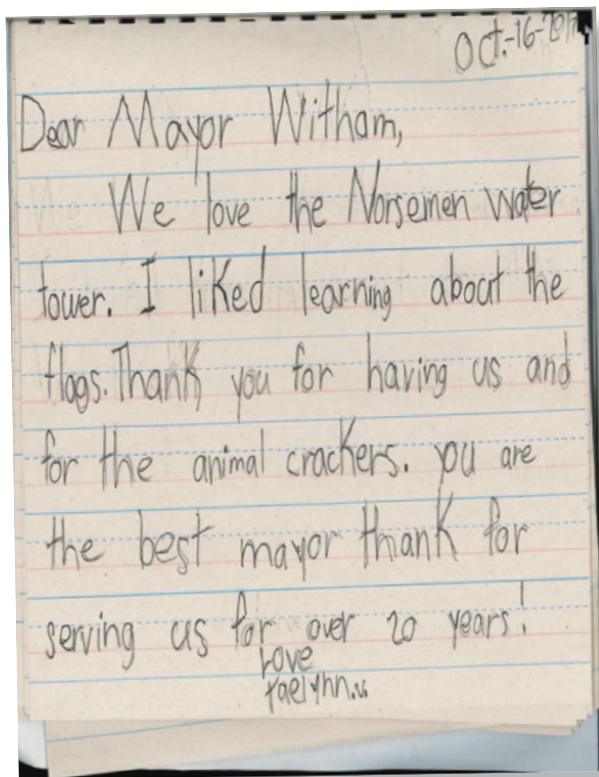 Oct.-16-2017
Dear Mayor Witham,
We love the Norsemen water
tower. I liked learning about the
flags. Thank you for having us and
for the animal crackers. you are
the best mayor thank for
serving us for over 20 years!
Love
Kaelynn.v.